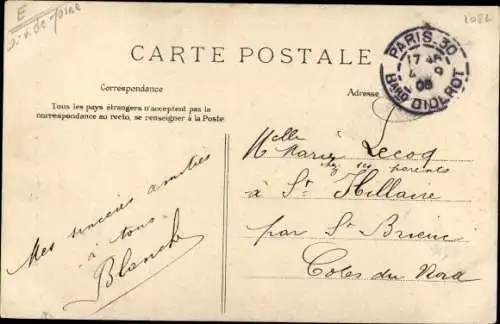 E
1082
CARTE POSTALE
PARIS. 30
17
4 9
06
BARD DIDEROT
Correspondance
Adresse
Tous les pays étrangers n'acceptent pas la
correspondance au recto, se renseigner à la Poste.
Mes sincères amitiés
à tous
Blanche
Melle
Marie Lecoq
chez ses parents
à St Hillaire
par St Brieuc
Cotes du Nord